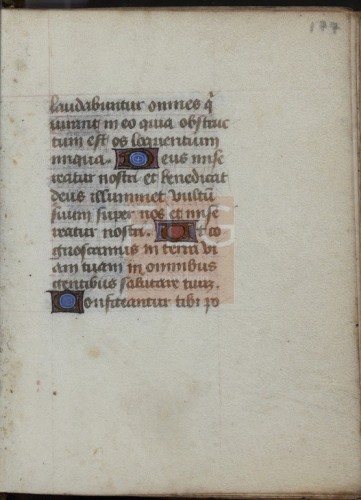 177
laudabuntur omnes q̄
iurant in eo quia obstruc
tum est os loquentium
iniqua. Deus mise
reatur nostri et benedicat
deus illuminet vultū
suum super nos et mise
reatur nostri. Ut co
gnoscamus in terra vi
am tuam in omnibus
gentibus salutare tuū.
Confiteantur tibi po